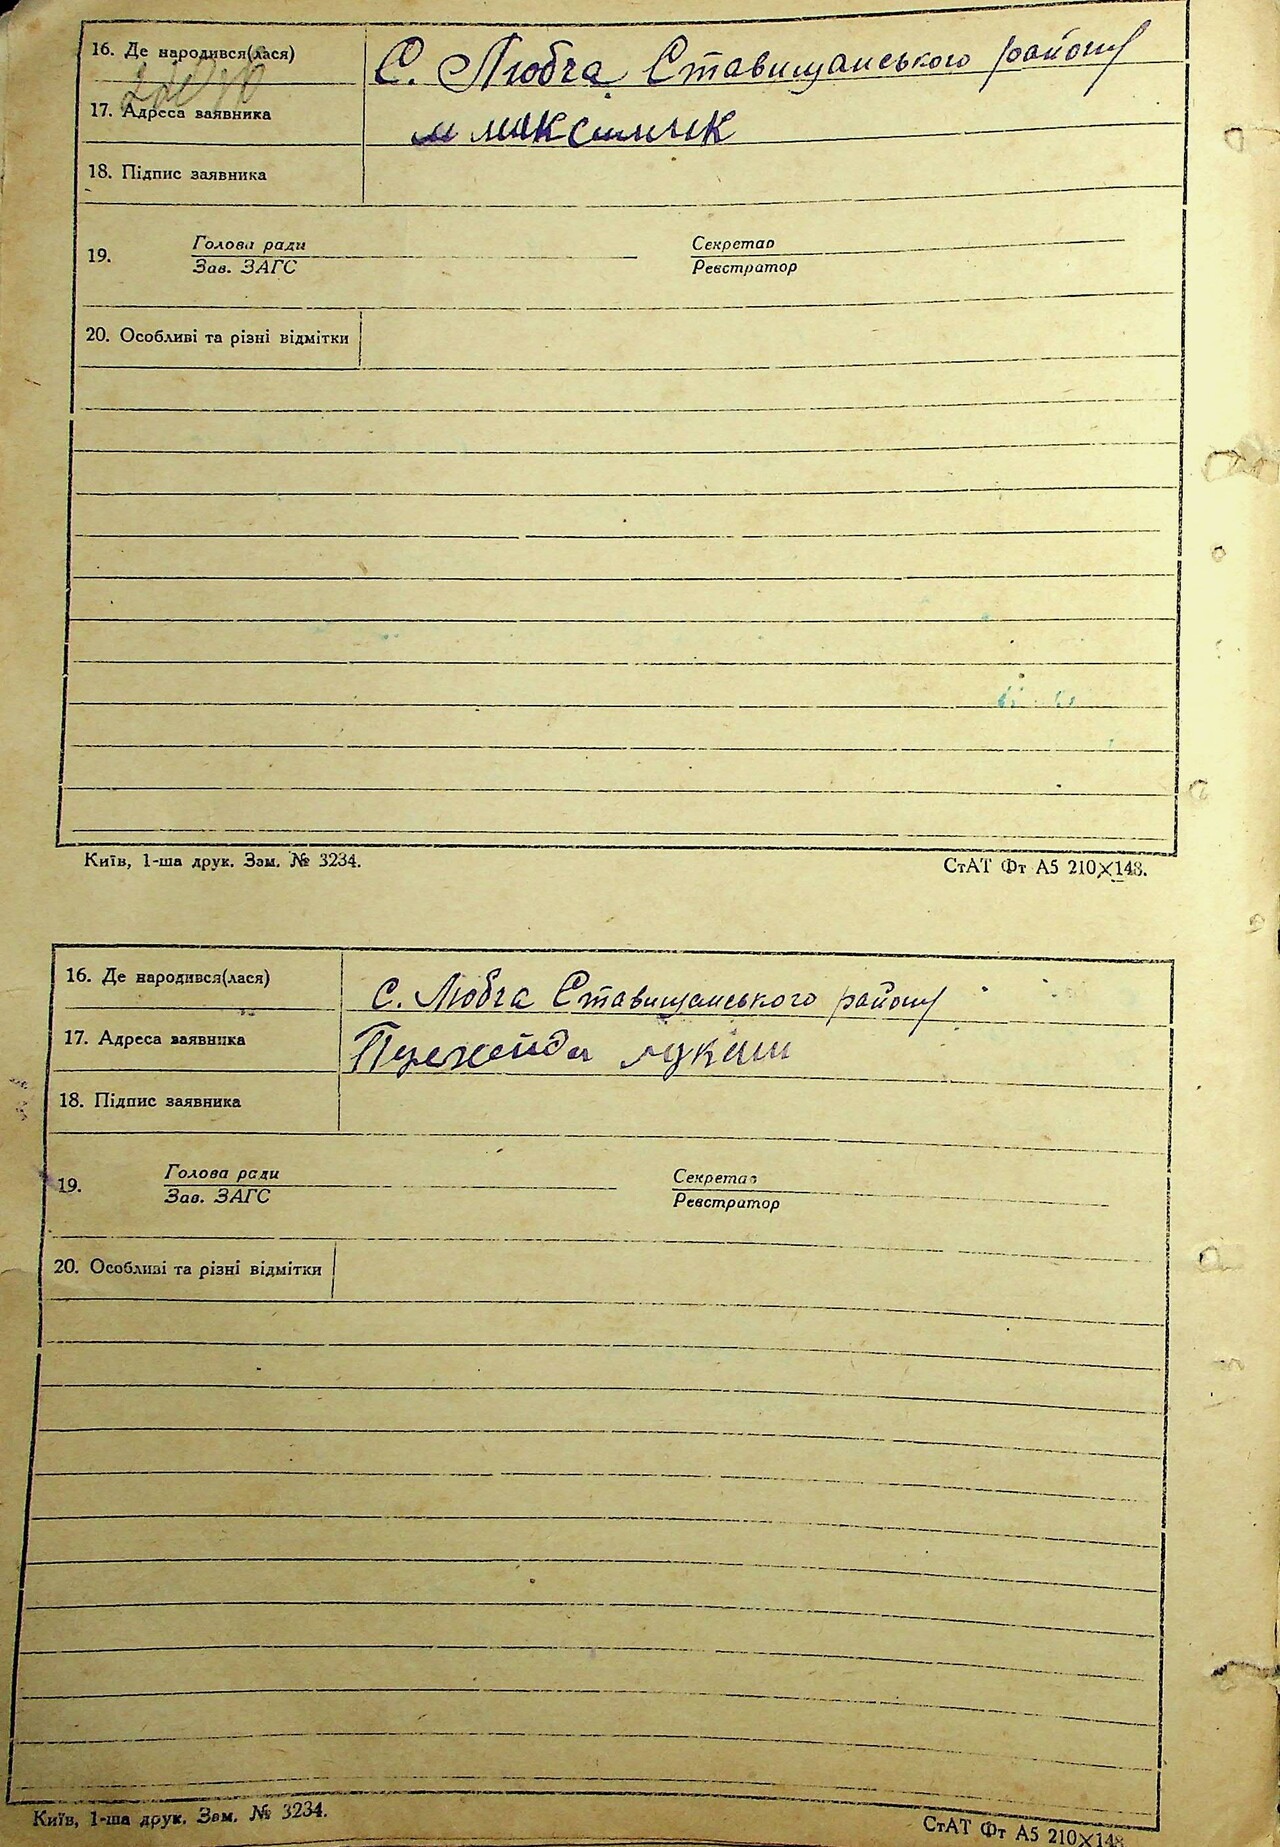 16. Де народився(лася) С. Любча Ставищанського району
17. Адреса заявника
18. Підпис заявника
19. Голова ради Секретар
Зав. ЗАГС Реєстратор
20. Особливі та різні відмітки
Київ, 1-ша друк. Зам. № 3234. СтАТ Фт А5 210×148.
16. Де народився(лася) С. Любча Ставищанського району
17. Адреса заявника
18. Підпис заявника
19. Голова ради Секретар
Зав. ЗАГС Реєстратор
20. Особливі та різні відмітки
Київ, 1-ша друк. Зам. № 3234. СтАТ Фт А5 210×148